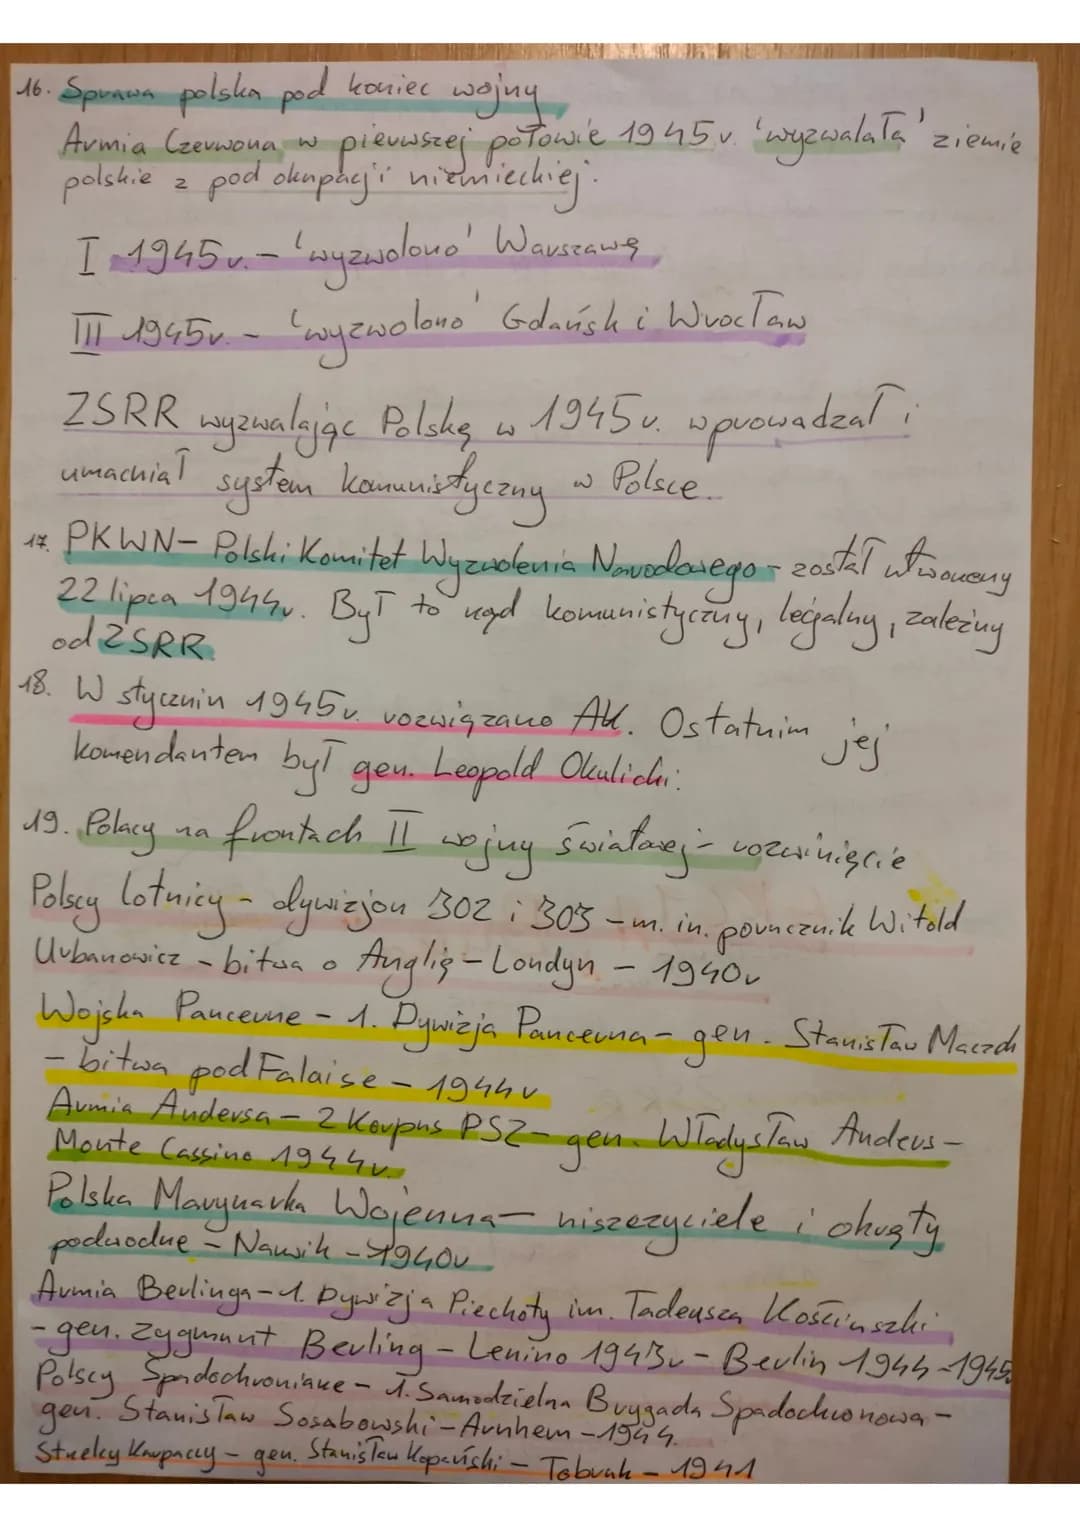 16. Sprawa polska pod koniec wojny
Armia Czerwona w pierwszej połowie 1945 r. 'wyzwalała' ziemie
polskie z pod okupacji niemieckiej.
I 1945 r. - 'wyzwolono' Warszawę
III 1945 r. - 'wyzwolono' Gdańsk i Wrocław
ZSRR wyzwalając Polskę w 1945 r. wprowadzał i
umacniał system komunistyczny w Polsce.
17. PKWN - Polski Komitet Wyzwolenia Narodowego - został utworzony
22 lipca 1944 r. Był to rząd komunistyczny, legalny, zależny
od ZSRR.
18. W styczniu 1945 r. rozwiązano AK. Ostatnim jej
komendantem był gen. Leopold Okulicki.
19. Polacy na frontach II wojny światowej - rozwinięcie
Polscy lotnicy - dywizjon 302 i 303 - m. in. porucznik Witold
Urbanowicz - bitwa o Anglię - Londyn - 1940 r
Wojska Pancerne - 1. Dywizja Pancerna - gen. Stanisław Maczek
- bitwa pod Falaise - 1944 r
Armia Andersa - 2 Korpus PSZ - gen. Władysław Anders -
Monte Cassino 1944 r.
Polska Marynarka Wojenna - niszczyciele i okręty
podwodne - Narwik - 1940 r
Armia Berlinga - 1. Dywizja Piechoty im. Tadeusza Kościuszki
- gen. Zygmunt Berling - Lenino 1943 r - Berlin 1944-1945
Polscy Spadochroniarze - 1. Samodzielna Brygada Spadochronowa -
gen. Stanisław Sosabowski - Arnhem - 1944.
Strzelcy Karpaccy - gen. Stanisław Kopański - Tobruk - 1941